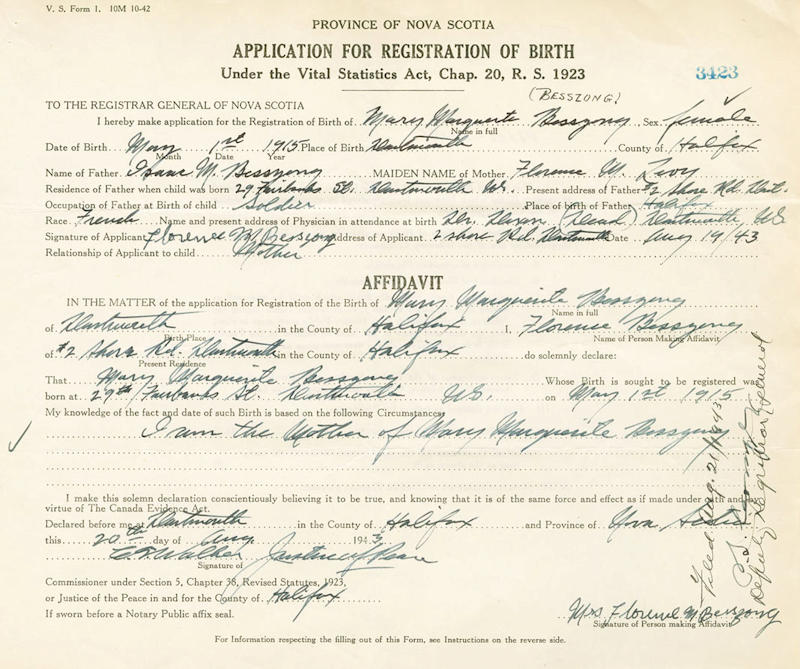 V. S. Form 1. 10M 10-42
PROVINCE OF NOVA SCOTIA
APPLICATION FOR REGISTRATION OF BIRTH
Under the Vital Statistics Act, Chap. 20, R. S. 1923
3423
(BESSZONG)
TO THE REGISTRAR GENERAL OF NOVA SCOTIA
I hereby make application for the Registration of Birth of Mary Marguerite Besszong Sex female
Name in full
Date of Birth May 1st 1915 Place of Birth Dartmouth County of Halifax
Month Date Year
Name of Father Isaac M. Besszong MAIDEN NAME of Mother Florence M. Levy
Residence of Father when child was born 29 Fairbanks St. Dartmouth N.S. Present address of Father #2 Shore Rd. Dart.
Occupation of Father at Birth of child Soldier Place of birth of Father Halifax
Race French Name and present address of Physician in attendance at birth Dr. Dixon (Dead) Dartmouth, NS
Signature of Applicant Florence M Besszong Address of Applicant 2 Shore Rd. Dartmouth Date Aug 19/43
Relationship of Applicant to child Mother
AFFIDAVIT
IN THE MATTER of the application for Registration of the Birth of Mary Marguerite Besszong
Name in full
of Dartmouth in the County of Halifax I, Florence Besszong
Birth Place Name of Person Making Affidavit
of #2 Shore Rd. Dartmouth in the County of Halifax do solemnly declare:
Present Residence
That Mary Marguerite Besszong Whose Birth is sought to be registered was
born at 29 Fairbanks St. Dartmouth NS. on May 1st, 1915
My knowledge of the fact and date of such Birth is based on the following Circumstances
I am the Mother of Mary Marguerite Besszong
I make this solemn declaration conscientiously believing it to be true, and knowing that it is of the same force and effect as if made under oath and by
virtue of The Canada Evidence Act.
Declared before me at Dartmouth in the County of Halifax and Province of Nova Scotia
this 20th day of Aug 1943
Walker Justice of Peace
Signature of
Commissioner under Section 5, Chapter 38, Revised Statutes, 1923,
or Justice of the Peace in and for the County of Halifax
If sworn before a Notary Public affix seal.
Mrs Florence M Besszong
Signature of Person making Affidavit
For Information respecting the filling out of this Form, see Instructions on the reverse side.
Filed Aug. 21/1943
Deputy Registrar General